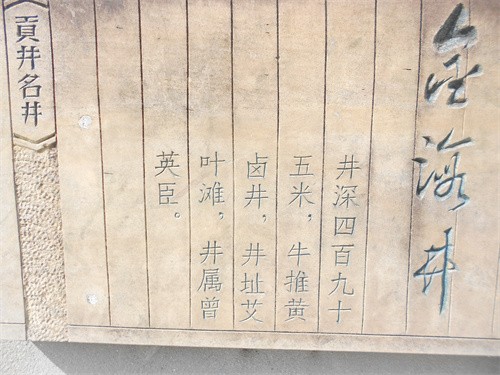 金海井
井深四百九十
五米，牛推黄
卤井，井址艾
叶滩，井属曾
英臣。
貢井名井